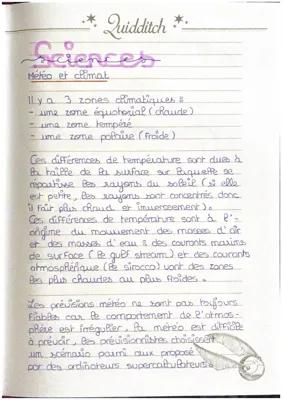 Quidditch
Sciences
sciences
Météo et climat
Il y a 3 zones climatiques :
- une zone équatorial (chaude)
- une zone tempéré
- une zone polaire (froide)
Ces différences de température sont dues à
la taille de la surface sur laquelle se
répartisse les rayons du soleil (si elle
est petite, les rayons sont concentrés donc
il fait plus chaud et inversement).
Ces différences de température sont à l'-
origine du mouvement des masses d'air
et des masses d'eau : des courants marins
de surface (le gulf stream) et des courants
atmosphérique (le sirocco) vont des zones
les plus chaudes au plus froides.
Les prévisions météo ne sont pas toujours
fiables car le comportement de l'atmos-
phère est irrégulier. La météo est difficile
à prévoir, les prévisionnistes choisissent
un scénario parmi aux proposé
par des ordinateurs supercalculateurs